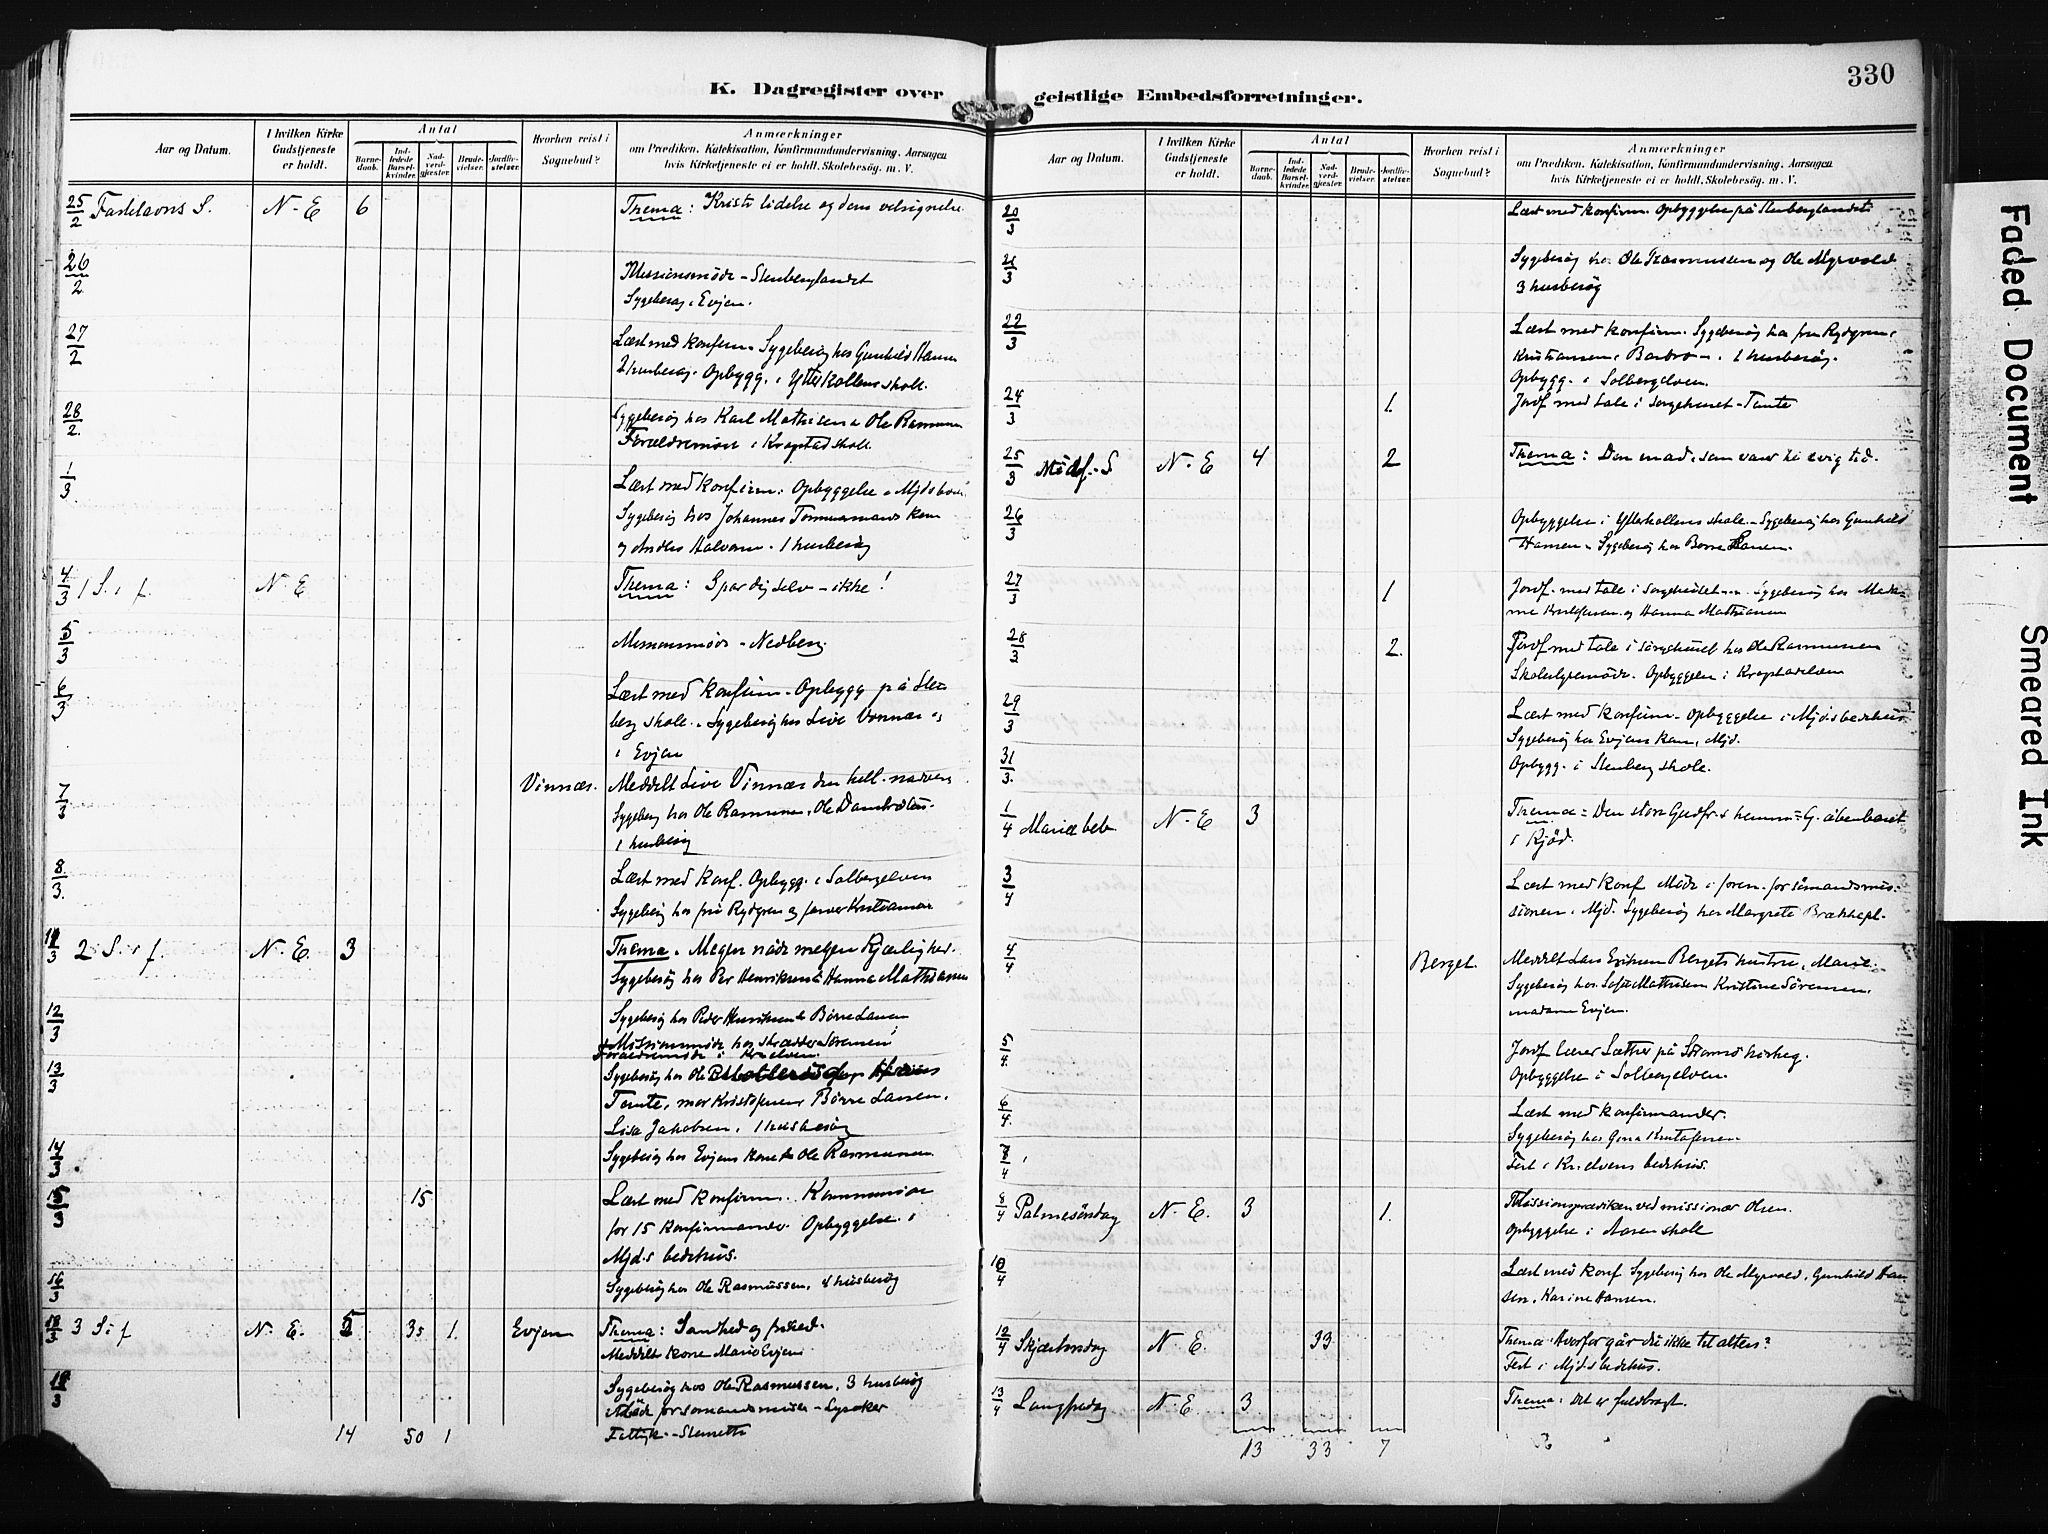 330
K. Dagregister over geistlige Embedsforretninger.
Aar og Datum.
I hvilken Kirke Gudstjeneste er holdt.
Antal
Barnedaab.
Indledede Barselkvinder.
Nadverdgjester.
Brudevielser.
Jordfæstelser.
Hvorhen reist i Sognebud?
Anmærkninger
om Prædiken, Katekisation, Konfirmandundervisning, Aarsagen
hvis Kirketjeneste ei er holdt, Skolebesög. m. V.
25/2 Fastelavns S. N. E 6 Thema: Kristi lidelse og dens velsignelse
26/2 Missionsmöde - Stenberglandet
Sygebesög i Evjen.
27/2 Læst med konfirm. Sygebesög hos Gunhild Hansen
2 husbesög. Opbygg. i Ytterkollens skole.
28/2 Sygebesög hos Karl Mathisen Ole Rasmussen
Forældremöte i Krogstad skole
1/3 Læst med konfirm. Opbyggelse i Mjds
Sygebesög hos Johannes kone
og Anders Halvorsen. 1 husbesög
4/3 1 S. i f. N. E Thema: Spar dig selv - ikke!
5/3 Missionsmöde - Nedberg
6/3 Læst med konfirm. Opbygg på Sten
berg skole. Sygebesög hos Live Vinnæs og
i Evjen
7/3 Vinnæs. Meddelt Live Vinnæs den hell. nadver
Sygebesög hos Ole Rasmussen, Ole
1 husbesög
8/3 Læst med konf. Opbygg. i Solbergelven
Sygebesög hos fru Rydgren og
11/3 2 S. i f. N. E. 3 Thema. Megen nåde megen kjærlighed.
Sygebesög hos Per Henriksen Hanna Mathiasen
12/3 Sygebesög hos Peder Henriksen Börre Larsen
Missionsmöde hos skrædder Sörensen
Forældremöde i Kr.elven
13/3 Sygebesög hos Ole
Tomte, mor Kristofersen Börre Larsen.
Lisa Jakobsen. 1 husbesög
14/3 Sygebesög hos Evjens kone Ole Rasmussen
15/3 15 Læst med konfirm. Kommunion
for 15 konfirmander. Opbyggelse i
Mjd.s bedehus.
16/3 Sygebesög hos Ole Rasmussen, husbesög
18/3 3 S. i f N. E. 5 35 1. Evjen Thema: Sandhed og frihed.
Meddelt kone Marie Evjen
19/3 Sygebesög hos Ole Rasmussen. 3 husbesög
Möde for sömandsmission - Lysaker
14 50 1
20/3 Læst med konfirm. Opbyggelse på Stenberglandet
21/3 Sygebesög hos Ole Rasmussen og Ole Myrvold
3 husbesög
22/3 Læst med konfirm. Sygebesög hos fru Rydgren,
Kristiansen, 1 husbesög.
Opbygg. i Solbergelven.
24/3 1. Jordf med tale i sörgehuset - Tomte
25/3 Midf. S. N. E 4 2 Thema: Den mad, som varer til evig tid.
26/3 Opbyggelse i Ytterkollens skole. Sygebesög hos Gunhild
Hansen. Sygebesög hos Börre Larsen.
27/3 1 Jordf. med tale i sörgehuset. Sygebesög hos Mada-
me Kristofersen og Hanna Mathiasen
28/3 2. Jordf med tale i sörgehuset hos Ole Rasmussen
Skolestyremöde. Opbyggelse i Krogstadelven
29/3 Læst med konfirm. Opbyggelse i Mjds bedehus
Sygebesög hos Evjens kone, Mjd.
31/3 Opbygg. i Stenberg skole.
1/4 Mariæ beb. N. E 3 Thema: Den store Gudfr.s hemm = G. åbenbaret
i kjöd.
3/4 Læst med konf Möde i foren. for sömandsmis-
sionen. Mjd. Sygebesög hos Margrete Brækhepl.
4/4 Berget. Meddelt Lars Eriksen Bergets hustru, Marie.
Sygebesög hos Sofie Mathisen Kristine Sörensen,
madam Evjen.
5/4 Jordf lærer Sæther på Strömsö kirkeg.
Opbyggelse i Solbergelven.
6/4 Læst med konfirmander.
Sygebesög hos Gina Kristofersen
7/4 Fest i Kr.elvens bedehus.
8/4 Palmesöndag N. E. 3 1. Missionsprædiken ved missionær Olsen.
Opbyggelse i Aasen skole
10/4 Læst med konf Sygebesög hos Ole Myrvold, Gunhild Han-
sen, Karine Hansen.
12/4 Skjærtorsdag N. E. 33 Thema: Hvorfor går du ikke til alters?
Fest i Mjds bedehus.
13/4 Langfredag N. E. 3 Thema: Det er fuldbragt.
13 33 7
Faded Document
Smeared Ink